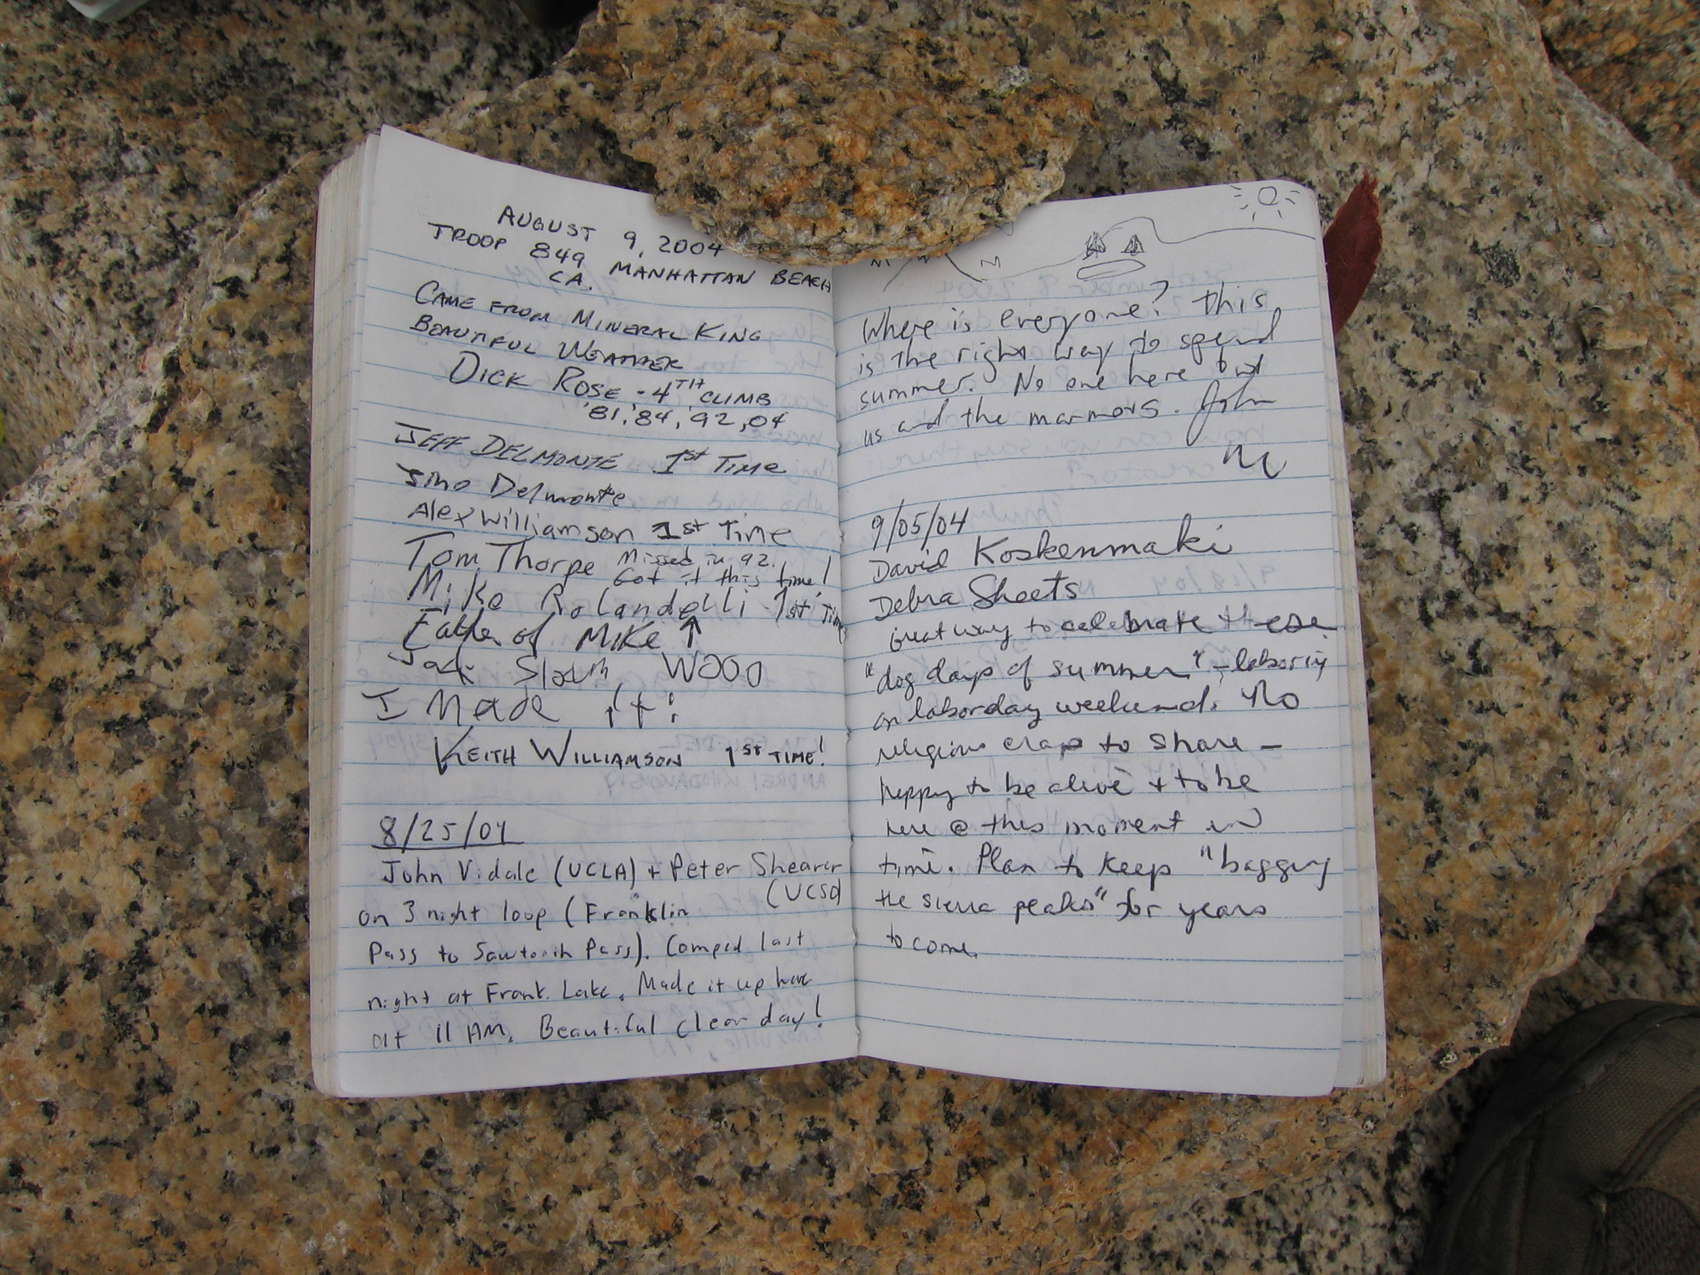 AUGUST 9, 2004
TROOP 849 MANHATTAN BEACH
CA.
CAME FROM MINERAL KING
BEAUTIFUL WEATHER
DICK ROSE - 4TH CLIMB
'81, '84, '92, 04
JEFF DELMONTE 1st TIME
Delmonte
Alex Williamson 1st Time
Tom Thorpe Missed in 92.
Got it this time!
Mike Rolandelli 1st Time
Father of MIKE ↑
WOOD
I Made it!
KEITH WILLIAMSON 1ST TIME!
8/25/04
John Vidale (UCLA) + Peter Shearer
(UCSD)
on 3 night loop (Franklin
Pass to Sawtooth Pass). Camped last
night at Frank. Lake. Made it up here
at 11 AM. Beautiful clear day!
Where is everyone? This
is the right way to spend
summer. No one here but
us and the marmots. John
9/05/04
David Koskenmaki
Debra Sheets
Great way to celebrate these
"dog days of summer" - laboring
on laborday weekend. No
religious crap to share -
happy to be alive + to be
here @ this moment in
time. Plan to keep "bagging
the sierra peaks" for years
to come.